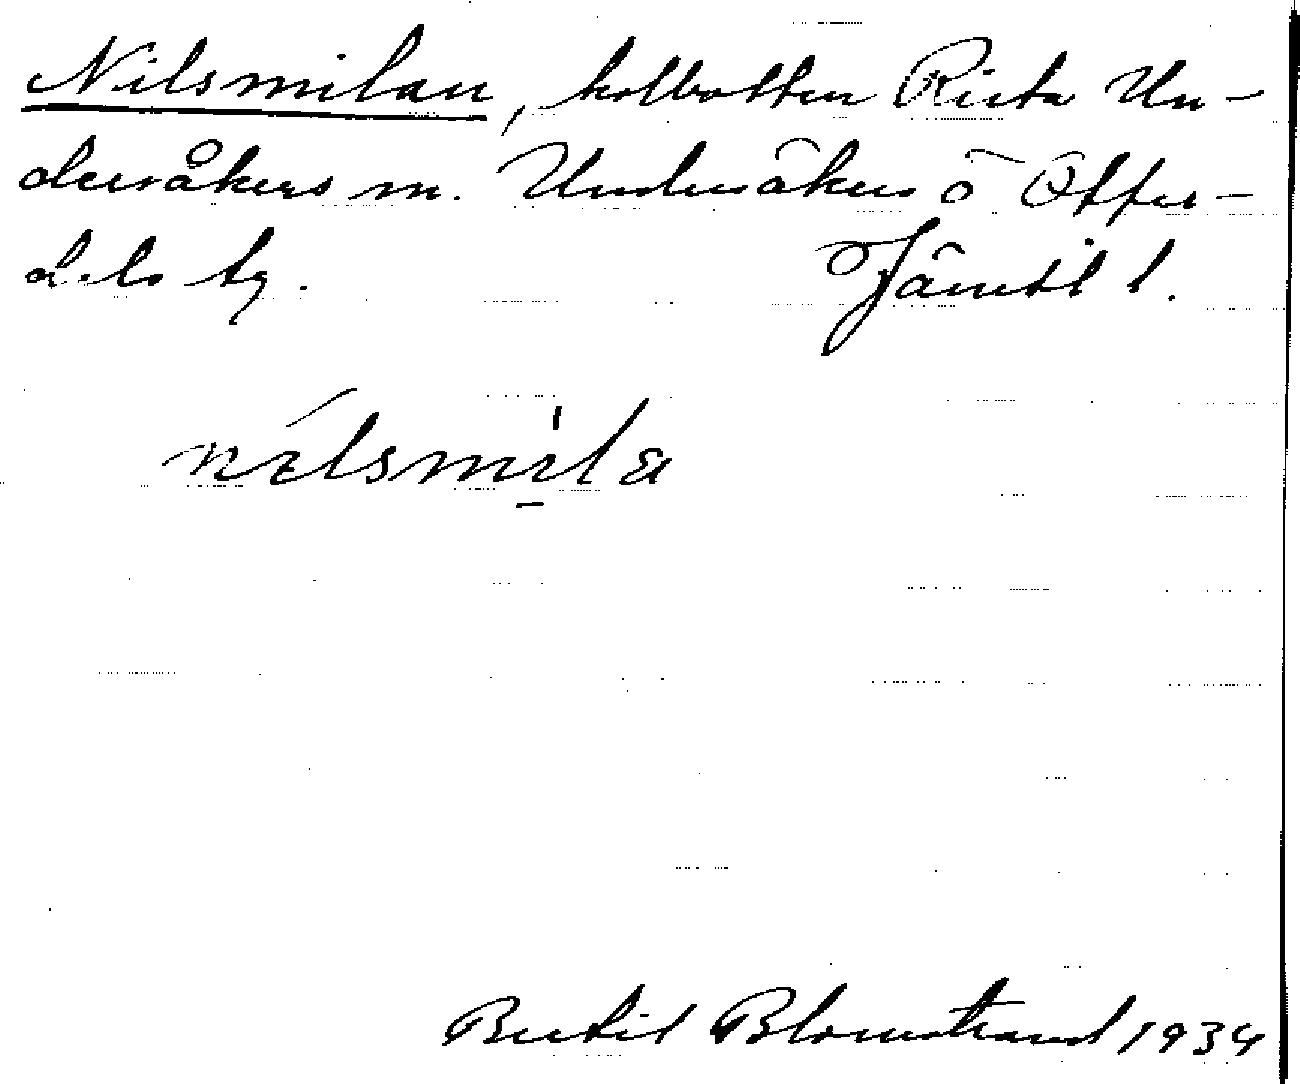 Nilsmilan, kolbotten Rista Un-
dersåkers sn. Undersåkers o Offer-
dals tg. Jämtl l.
nìlsmi̠la
Bertil Blomstrand 1934